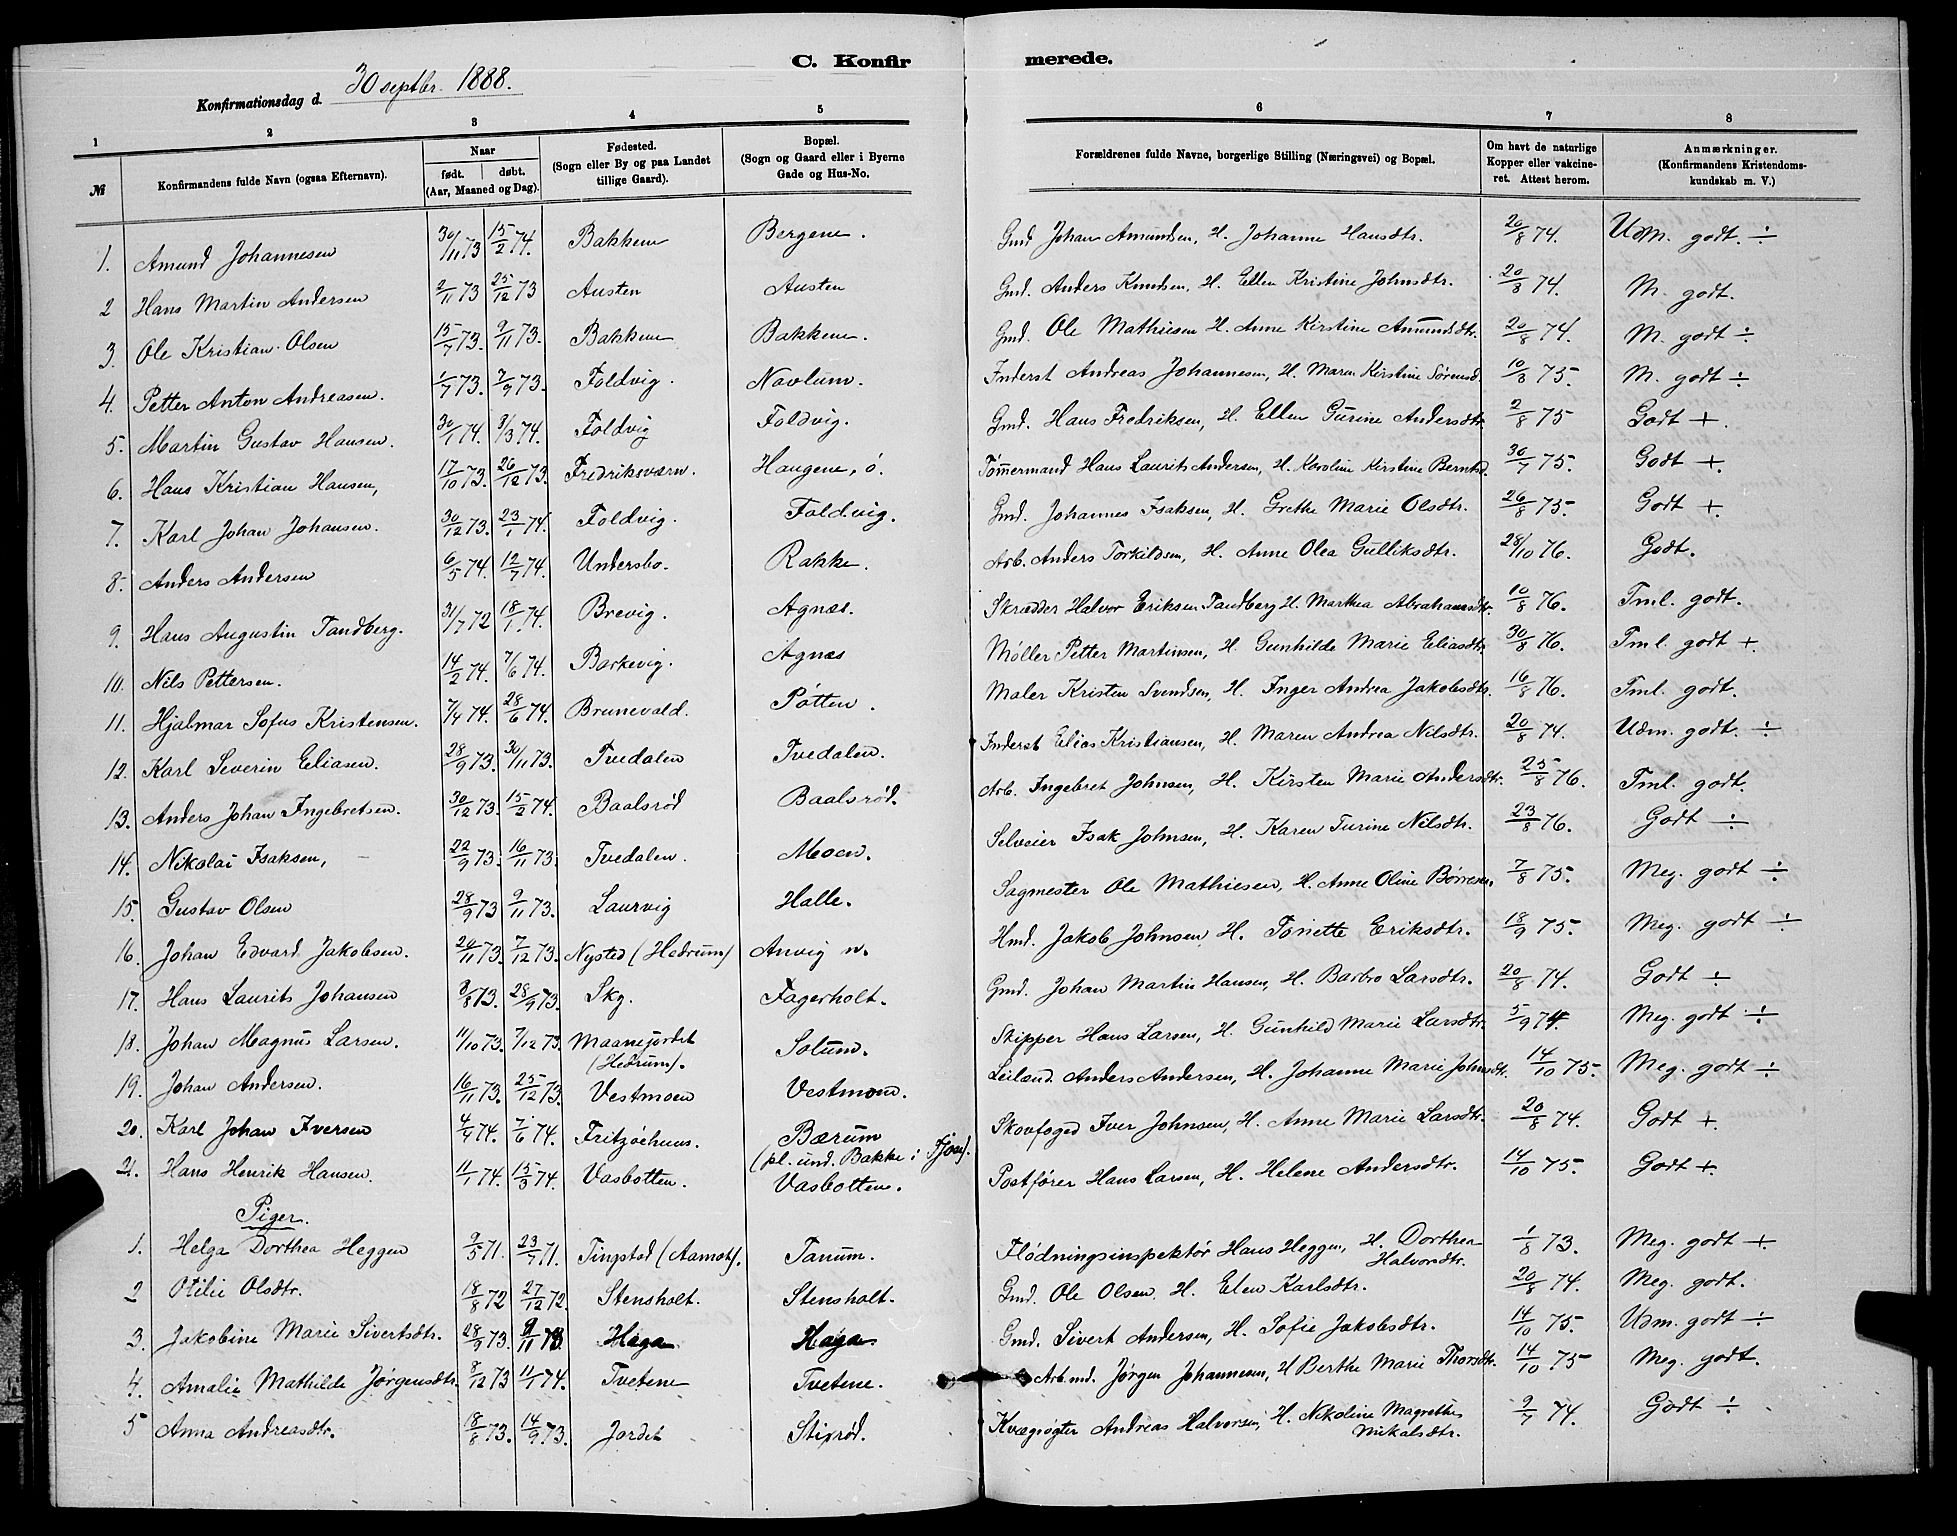 C. Konfirmerede.
Konfirmationsdag d. 30 septbr. 1888.
1 2 3 4 5 6 7 8
№ Konfirmandens fulde Navn (ogsaa Efternavn). Naar født. døbt. (Aar, Maaned og Dag). Fødested. (Sogn eller By og paa Landet tillige Gaard). Bopæl. (Sogn og Gaard eller i Byerne Gade og Hus-No. Forældrenes fulde Navne, borgerlige Stilling (Næringsvei) og Bopæl. Om havt de naturlige Kopper eller vakcineret. Attest herom. Anmærkninger. (Konfirmandens Kristendomskundskab m. V.)
1. Amund Johannesen 30/11 73 15/2 74. Bakkene Bergene. Gmd Johan Amundsen, H. Johanne Hansdtr. 20/8 74. Udm. godt. ÷
2 Hans Martin Andersen 2/11 73 25/12 73 Austen Austen Gmd. Anders Knudsen, H. Ellen Kristine Johnsdtr. 20/8 74. M. godt.
3. Ole Kristian Olsen 15/7 73. 9/11 73. Bakkene Bakkene. Gmd. Ole Mathiesen H. Anne Kirstine Amundsdtr. 20/8 74. M. godt ÷
4. Petter Anton Andreasen. 1/7 73. 7/9 73. Foldvig. Navlum. Inderst Andreas Johannesen, H. Maren Kirstine Sørensd. 10/8 75. M. godt ÷
5. Martin Gustav Hansen. 30/1 74. 8/3 74. Foldvig Foldvig. Gmd. Hans Fredriksen, H. Ellen Gurine Andersdtr. 2/8 75 Godt +.
6. Hans Kristian Hansen, 17/10 73. 26/12 73. Fredriksværn. Haugene, ö. Tømmermand Hans Laurits Andersen, H. Karoline Kirstine Berntsd. 30/7 75. Godt +
7. Karl Johan Johansen. 30/12 73. 23/1 74. Foldvig. Foldvig. Gmd. Johannes Isaksen, H. Grethe Marie Olsdtr. 26/8 75. Godt +.
8. Anders Andersen 6/5 74. 12/7 74. Undersbo. Rakke. Arb. Anders Torkildsen, H. Anne Olea Gulliksdtr. 28/10 76. Godt.
9. Hans Augustin Tandberg. 31/7 72 18/1 74. Brevig. Agnæs. Skrædder Halvor Eriksen Tandberg H. Marthea Abrahamsdtr. 10/8 76. Tml. godt.
10. Nils Pettersen. 14/2 74. 7/6 74. Barkevig. Agnæs Møller Petter Martinsen, H. Gunhilde Marie Eliasdtr. 30/8 76. Tml. godt +.
11. Hjalmar Sofus Kristensen. 7/4 74. 28/6 74. Brunevald. Pøtten. Maler Kristen Svendsen, H. Inger Andrea Jakobsdtr. 16/8 76. Tml. godt.
12. Karl Severin Eliasen. 28/9 73. 30/11 73. Tvedalen Tvedalen. Inderst Elias Kristiansen, H. Maren Andrea Nilsdtr. 20/8 74. Udm. godt. ÷
13. Anders Johan Ingebretsen. 30/12 73. 15/2 74. Baalsrød Baalsrød. Arb. Ingebret Johnsen, H. Kirsten Marie Andersdtr. 25/8 76. Tml. godt.
14. Nikolai Isaksen, 22/9 73. 16/11 73. Tvedalen. Moen. Selveier Isak Johnsen, H. Karen Turine Nilsdtr. 23/8 76. Godt ÷
15. Gustav Olsen 28/9 73 9/11 73. Laurvig Halle. Sagmester Ole Mathiesen, H. Anne Oline Børresen. 7/8 75. Meg. godt ÷
16. Johan Edvard Jakobsen. 20/11 73. 7/12 73. Nysted (Hedrum) Anvig n. Hmd. Jakob Johnsen H. Tonette Eriksdtr. 18/9 75. Meg. godt ÷
17. Hans Laurits Johansen 8/8 73. 28/9 73. Skg. Fagerholt. Gmd. Johan Martin Hansen, H. Barbro Larsdtr. 20/8 74. Godt ÷
18. Johan Magnus Larsen. 11/10 73. 7/12 73. Maanejordet (Hedrum). Solum. Skipper Hans Larsen, H. Gunhild Marie Larsdtr. 5/9 74. Meg. godt ÷
19. Johan Andersen. 16/11 73. 25/12 73. Vestmoen Vestmoen. Leilænd. Anders Andersen, H. Johanne Marie Johnsdtr. 14/10 75. Meg. godt ÷
20. Karl Johan Iversen 4/4 74. 7/6 74. Fritzøehuus. Bærum (pl. und. Bakke i Tjøen). Skovfoged Iver Johnsen, H. Anne Marie Larsdtr. 20/8 74. Godt +.
21. Hans Henrik Hansen. 11/1 74. 15/3 74. Vasbotten. Vasbotten. Postfører Hans Larsen, H. Helene Andersdtr. 14/10 75. Godt +.
Piger.
1. Helga Dorthea Heggen 9/5 71. 23/7 71. Tingstad (Aamot). Tanum. Flødningsinspektør Hans Heggen, H. Dorthea Halvorsdtr. 1/8 73. Meg. godt +.
2 Otilie Olsdtr. 18/8 72 27/12 72. Stensholt. Stensholt. Gmd. Ole Olsen. H. Elen Karlsdtr. 20/8 74. Meg. godt.
3. Jakobine Marie Sivertsdtr. 28/9 73. 9/11 73. Haga Haga Gmd. Sivert Andersen, H. Sofie Jakobsdtr. 14/10 75. Udm. godt ÷
4. Amalie Mathilde Jørgensdtr. 8/12 73 11/1 74. Tvetene Tvetene. Arb.md. Jørgen Johannesen, H Berthe Marie Thorsdtr. 14/10 75 Meg. godt.
5 Anna Andreasdtr. 18/8 73. 14/9 73. Jordet Stixrød. Kvægrøgter Andreas Halvorsen, H. Nikoline Magrethe Mikalsdtr. 9/7 74. Godt ÷